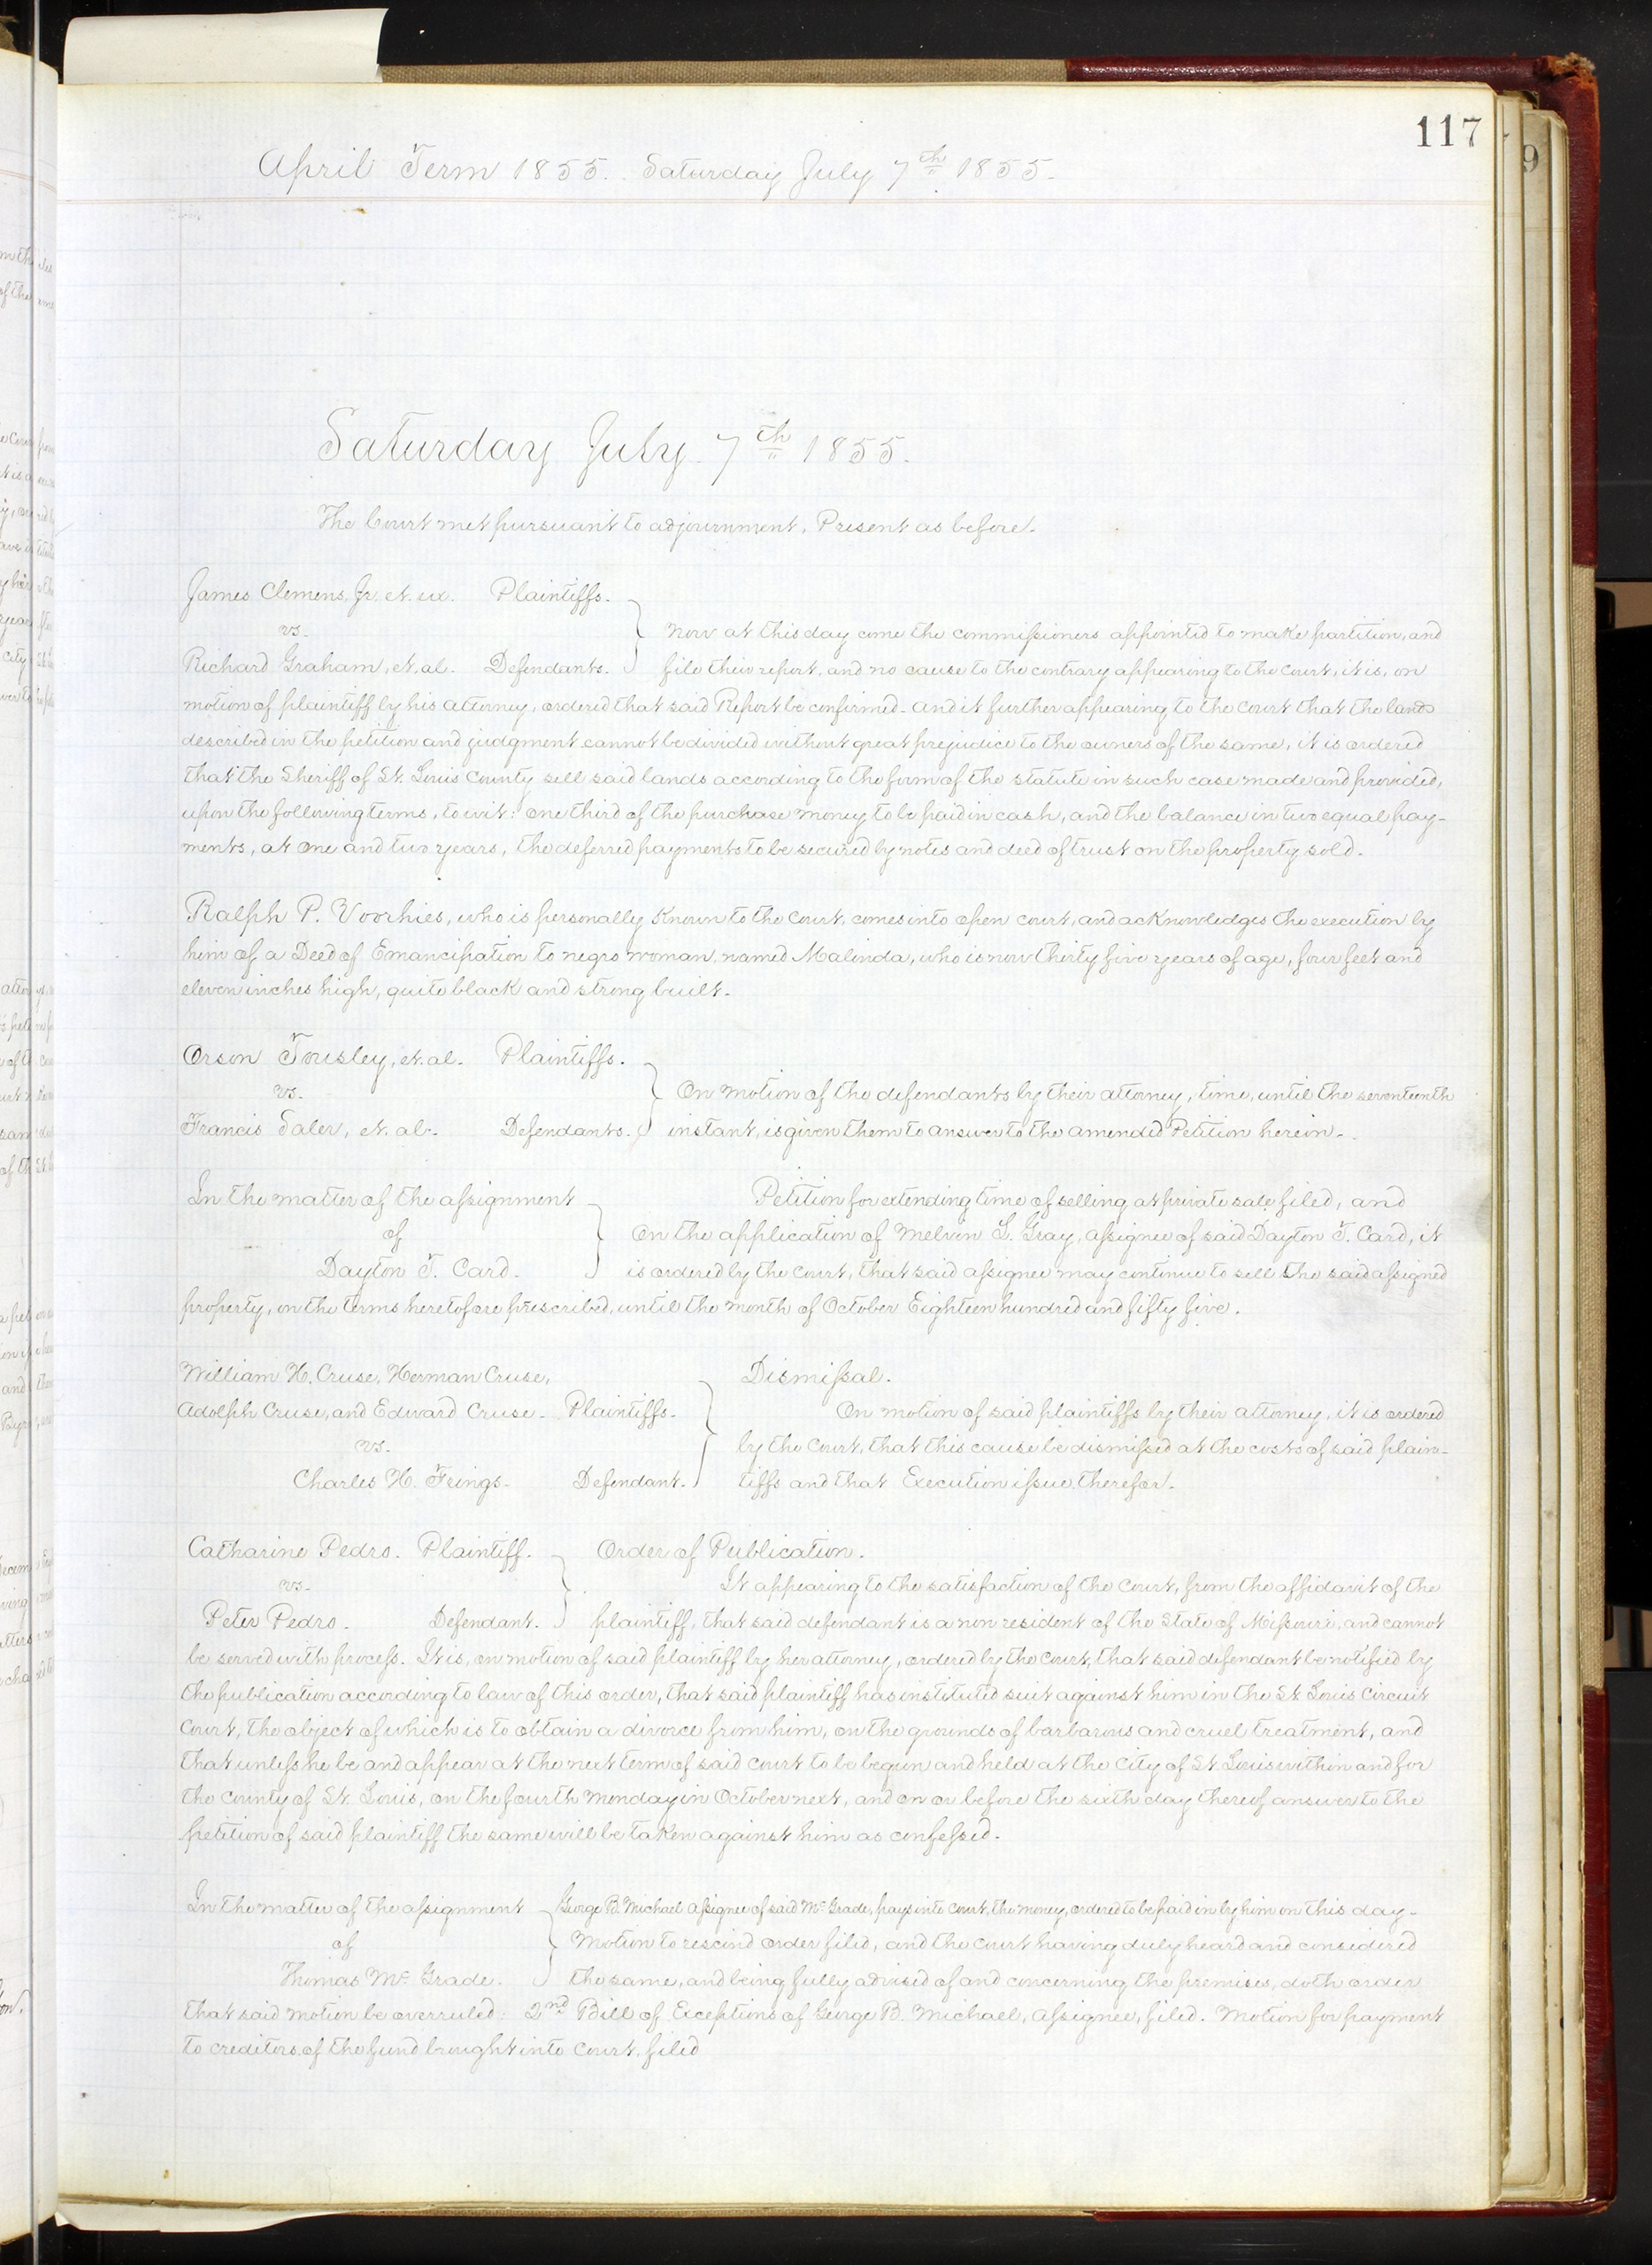 117
April Term 1855. Saturday July 7th 1855.
Saturday July 7th 1855.
The Court met pursuant to adjournment. Present as before.
James Clemens, Jr. et. ux. Plaintiffs.
vs.
Richard Graham, et. al. Defendants.
Now at this day come the commissioners appointed to make partition, and
file their report, and no cause to the contrary appearing to the Court, it is, on
motion of plaintiff by his attorney, ordered that said Report be confirmed. And it further appearing to the Court that the lands
described in the petition and judgment cannot be divided without great prejudice to the owners of the same, it is ordered
that the Sheriff of St. Louis County sell said lands according to the form of the statute in such case made and provided,
upon the following terms, to wit: One third of the purchase money to be paid in cash, and the balance in two equal pay-
ments, at one and two years, the deferred payments to be secured by notes and deed of trust on the property sold.
Ralph P. Voorhies, who is personally known to the Court, comes into open court, and acknowledges the execution by
him of a Deed of Emancipation to negro woman, named Malinda, who is now thirty five years of age, four feet and
eleven inches high, quite black and strong built.
Orson Tousley, et. al. Plaintiffs.
vs.
Francis Saler, et. al. Defendants.
On motion of the defendants by their attorney, time, until the seventeenth
instant, is given them to answer to the amended Petition herein.
In the matter of the assignment
of
Dayton T. Card.
Petition for extending time of selling at private sale filed, and
On the application of Melvin L. Gray, assignee of said Dayton T. Card, it
is ordered by the Court, that said assignee may continue to sell the said assigned
property, on the terms heretofore prescribed, until the month of October Eighteen hundred and fifty five.
William H. Cruse, Herman Cruse,
Adolph Cruse, and Edward Cruse. Plaintiffs.
vs.
Charles H. Frings. Defendant.
Dismissal.
On motion of said plaintiffs by their attorney, it is ordered
by the Court, that this cause be dismissed at the costs of said plain-
tiffs and that Execution issue therefor.
Catharine Pedro. Plaintiff.
vs.
Peter Pedro. Defendant.
Order of Publication.
It appearing to the satisfaction of the Court, from the affidavit of the
plaintiff, that said defendant is a non resident of the State of Missouri, and cannot
be served with process. It is, on motion of said plaintiff by her attorney, ordered by the Court, that said defendant be notified by
the publication according to law of this order, that said plaintiff has instituted suit against him in the St. Louis Circuit
Court, the object of which is to obtain a divorce from him, on the grounds of barbarous and cruel treatment, and
that unless he be and appear at the next term of said court to be begun and held at the City of St. Louis within and for
the County of St. Louis, on the fourth Monday in October next, and on or before the sixth day thereof answer to the
petition of said plaintiff the same will be taken against him as confessed.
In the matter of the assignment
of
Thomas Mc Grade.
George B. Michael assignee of said Mc Grade, pays into court, the money, ordered to be paid in by him on this day.
Motion to rescind order filed, and the Court having duly heard and considered
the same, and being fully advised of and concerning the premises, doth order
that said motion be overruled. 2nd Bill of Exceptions of George B. Michael, Assignee, filed. Motion for payment
to creditors of the fund brought into Court, filed